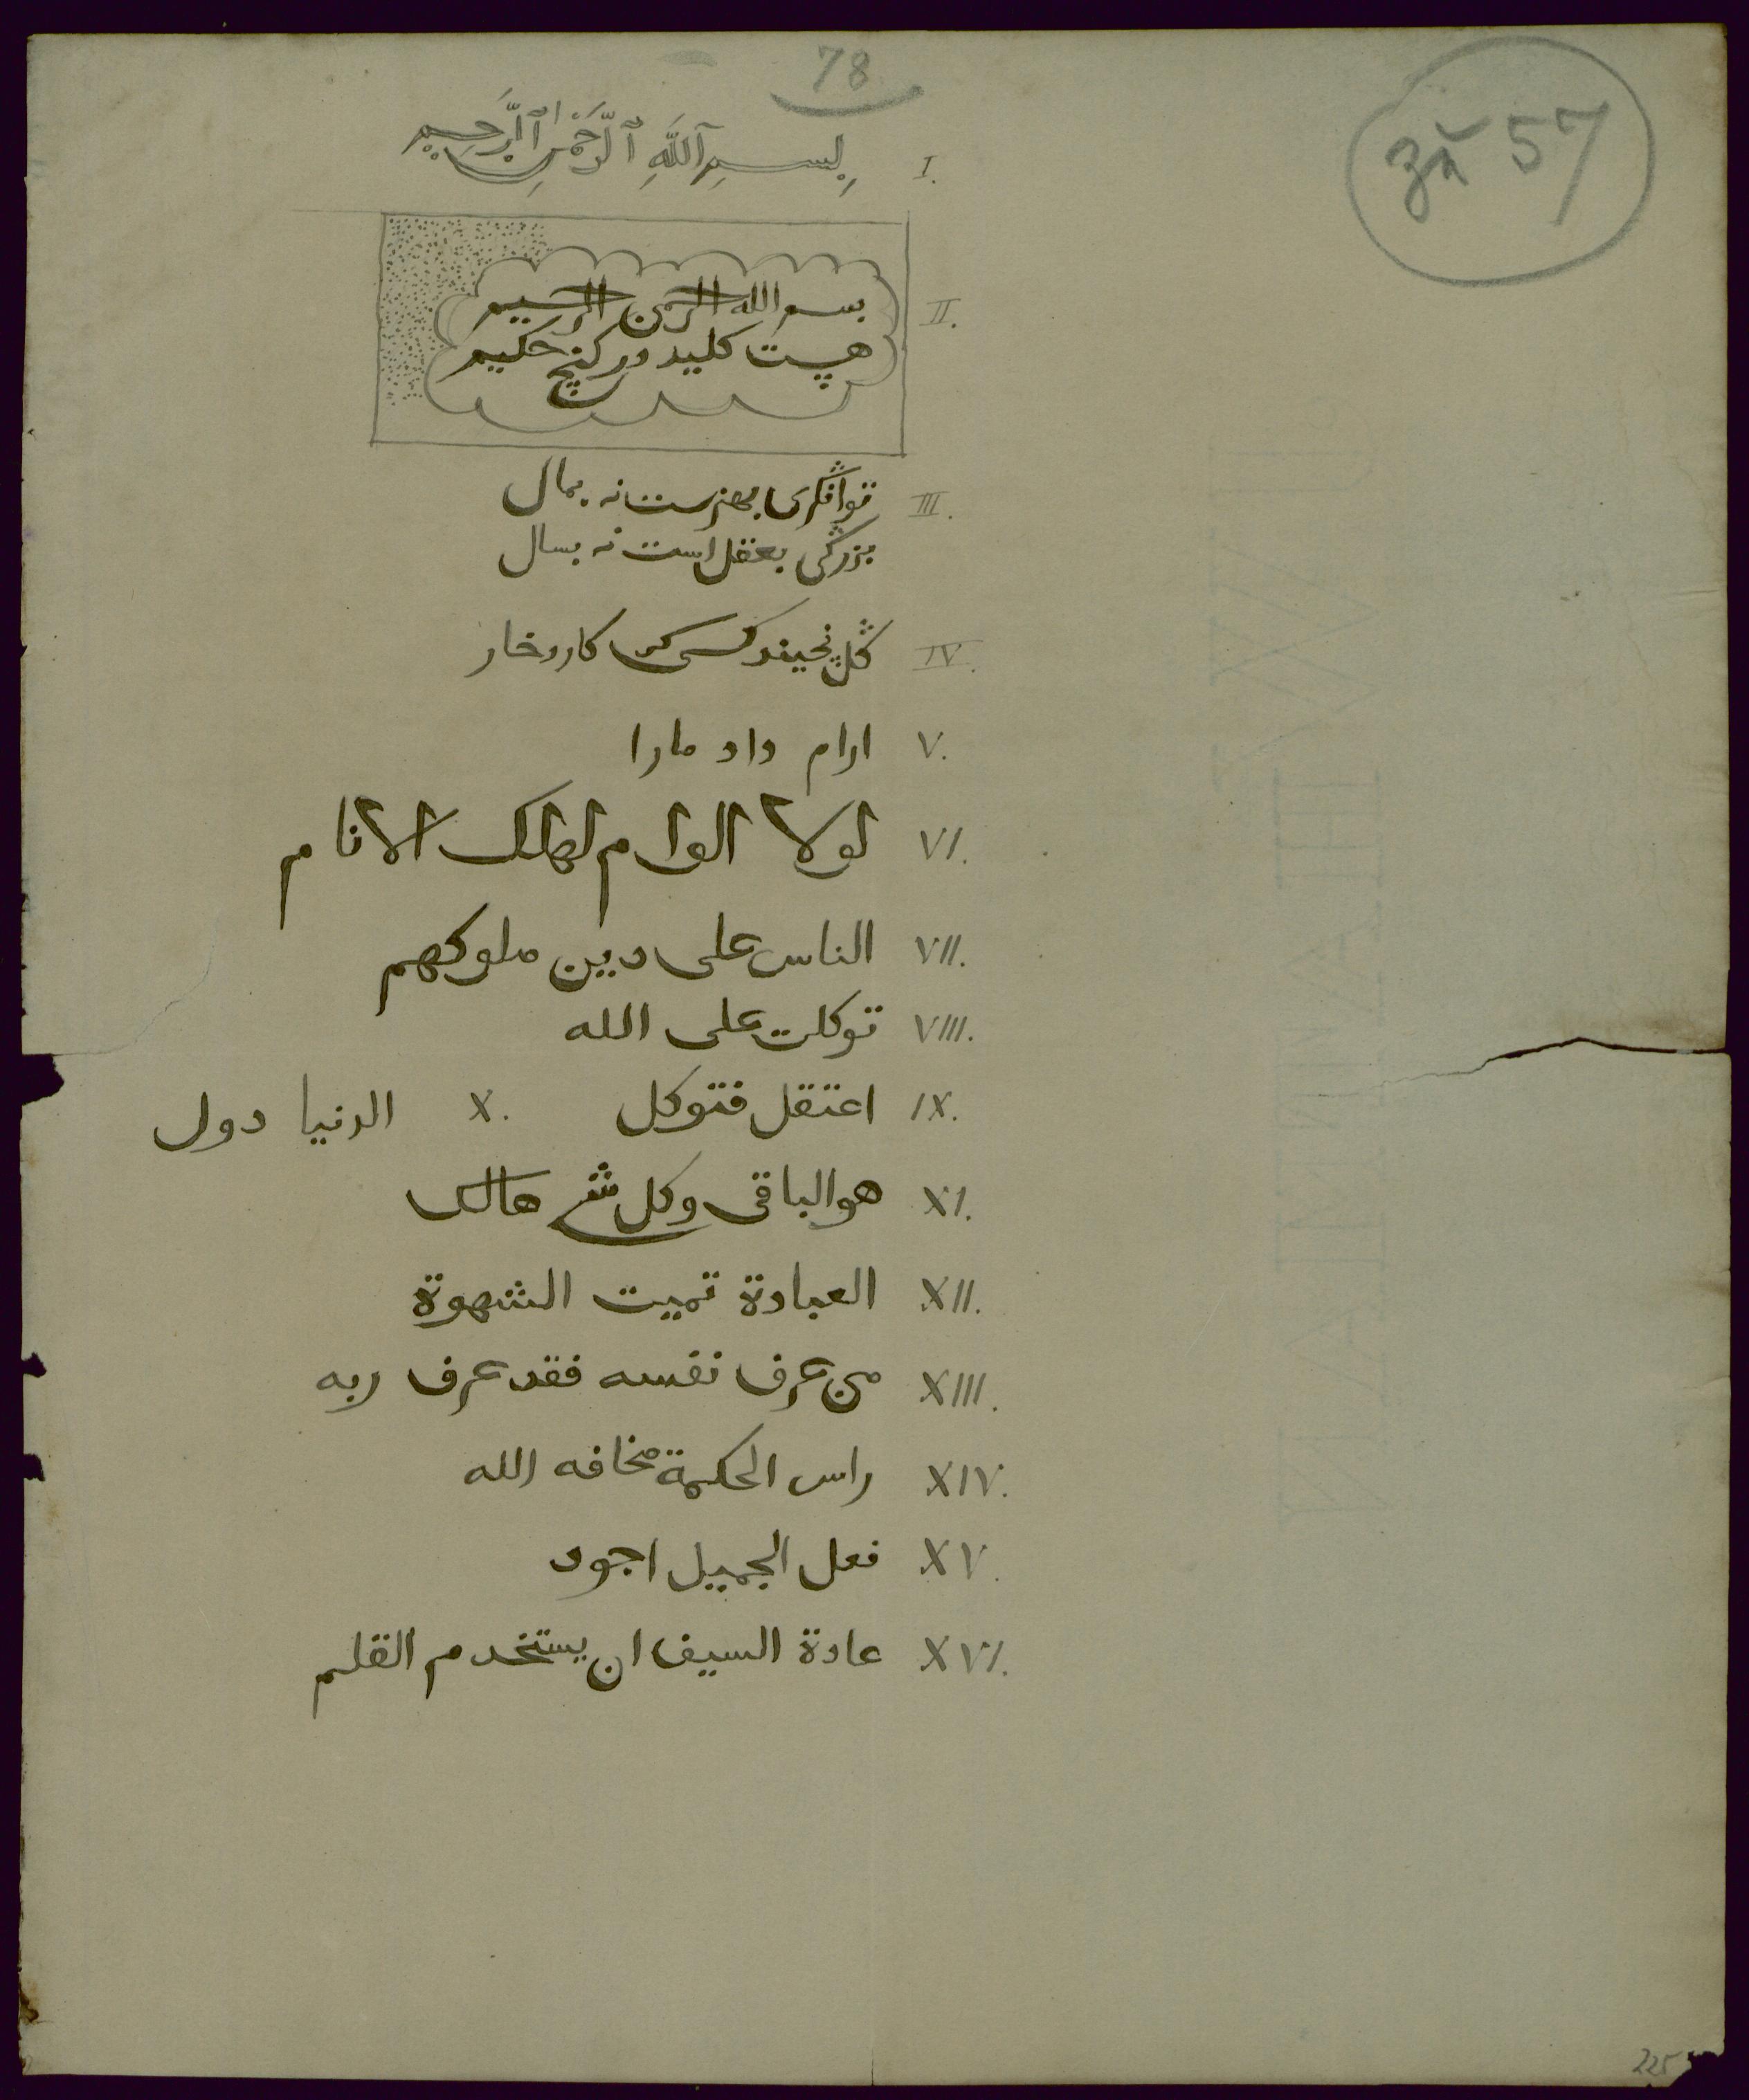 78
57
I. بِسْمِ ٱللَّهِ ٱلرَّحْمٰنِ ٱلرَّحِيمِ
II. بسم الله الرحمن الرحیم
هست کلید در کنج حکیم
III. توانگری بهنرست نه بمال
بزرگی بعقل است نه بسال
IV. گل نچیند کسی کز کارد خار
V. ارام داد مارا
VI. لولا الوام لهلك الانام
VII. الناس على دين ملوكهم
VIII. توكلت على الله
IX. اعتقل فتوكل X. الدنيا دول
XI. هو الباقى وكل شى هالك
XII. العبادة تميت الشهوة
XIII. من عرف نفسه فقد عرف ربه
XIV. راس الحكمة مخافه الله
XV. فعل الجميل اجود
XVI. عادة السيف ان يستخدم القلم
225